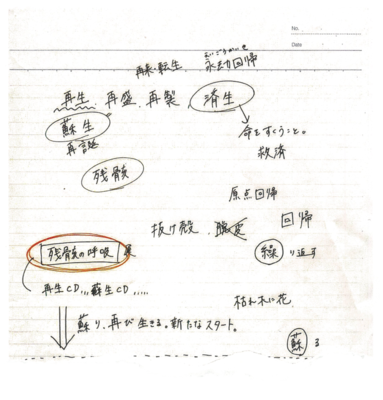 No.
Date
再来・転生. 永劫回帰
再生. 再盛. 再製. 済生
蘇生
命をすくうこと。
救済
残骸
原点回帰
抜け殻.
回帰
残骸の呼吸 展
繰り返す
再生CD... 蘇生CD.....
枯れ木に花
蘇り、再び生きる。新たなスタート。
蘇る